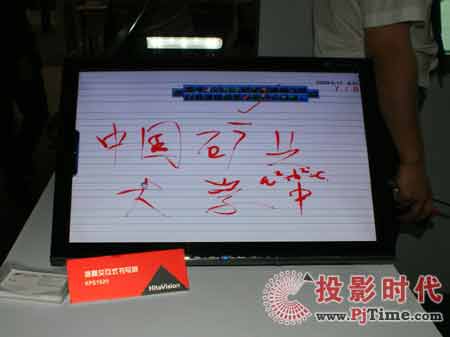 中国矿业
大学 中
交互式书写屏
HiteVision
投影时代
www.PjTime.com